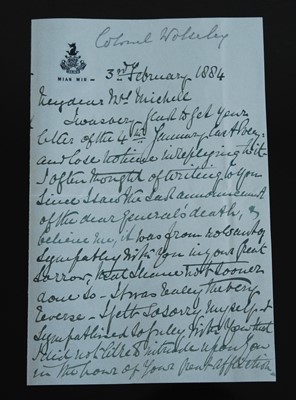 Colonel Wolseley
MIAN MIR
3rd February 1884
My dear Mrs Michell
I was very glad to get your
letter of the 4th January last & very
and lose no time in replying to it
I often thought of writing to you
since I saw the sad announcement
of the dear General's death,
believe me, it was from no want of
sympathy with you in your great
sorrow, that I have not sooner
done so - It was really the very
reverse - I felt so sorry myself &
sympathised so fully with you that
I did not like to intrude upon you
in the hour of your great affliction